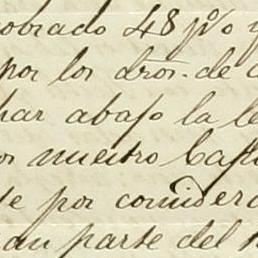 cobrado 48 p% y
por los dros. de
har abajo la le
or nuestro Capi
te por considera
gan parte del